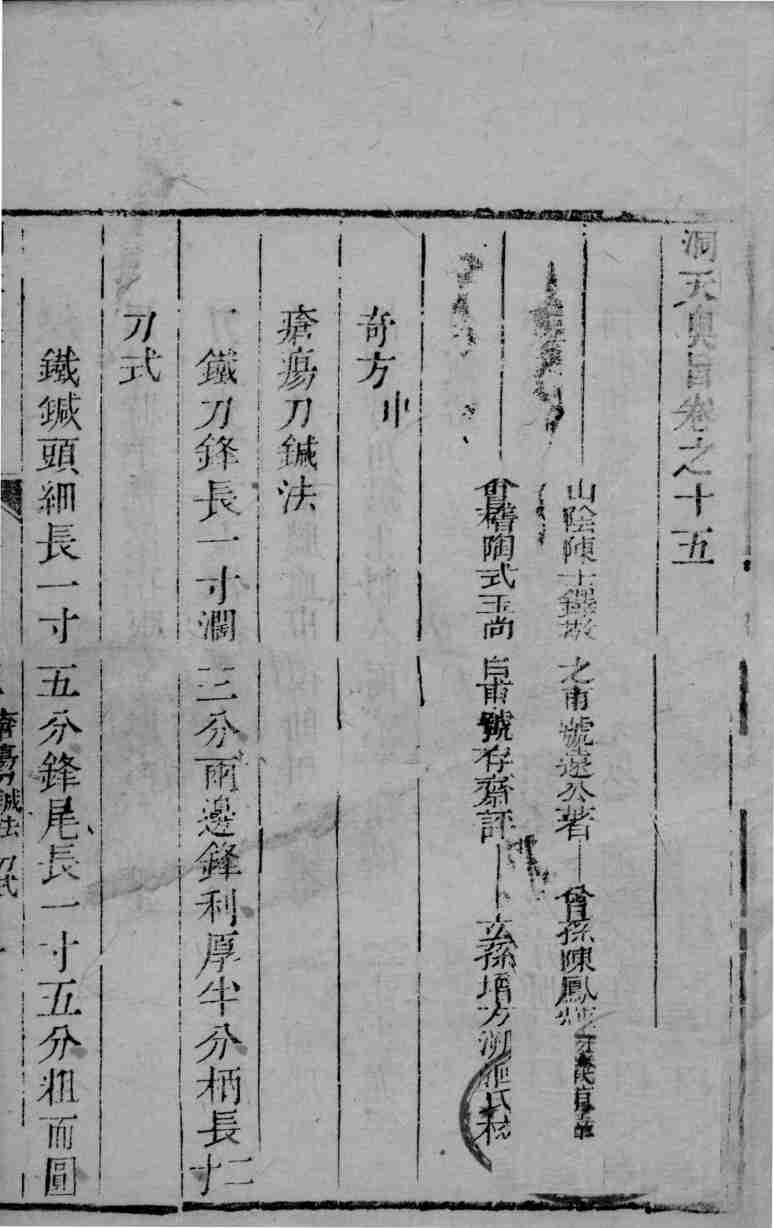 洞天奧旨卷之十五
山陰陳士鐸敬之甫號遠公著 曾孫陳鳳
會稽陶式玉尚白甫號存齋評 玄孫壻方
奇方 中
瘡瘍刀鍼法
一鐵刀鋒長一寸濶三分兩邊鋒利厚半分柄長二寸
刀式
鐵鍼頭細長一寸五分鋒尾長一寸五分粗而圓
瘡瘍刀鍼法 刀式